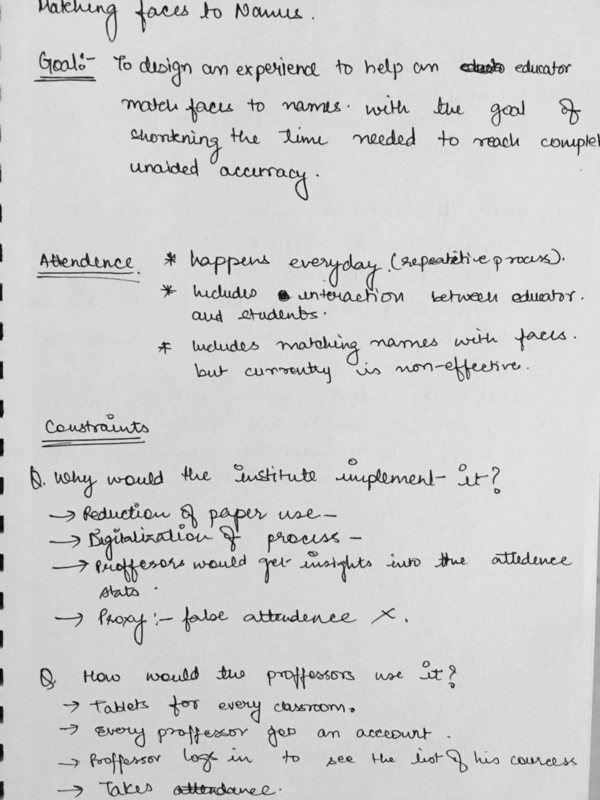 Matching faces to Names.
Goal:- To design an experience to help an educator
match faces to names. with the goal of
shortening the time needed to reach complet
unaided accuracy.
Attendence. * happens everyday. (repeatitive process).
* Includes interaction between educator.
and students.
* Includes matching names with faces.
but currently is non-effective.
Constraints
Q. Why would the institute implement it?
→ Reduction of paper use –
→ Digitalization of process –
→ Proffesors would get insights into the attedence
stats.
→ Proxy:- false attendence ×.
Q. How would the proffessors use it?
→ Tablets for every classroom.
→ Every proffessor gets an account.
→ Proffessor logs in to see the list of his courcess
→ Takes attendance.